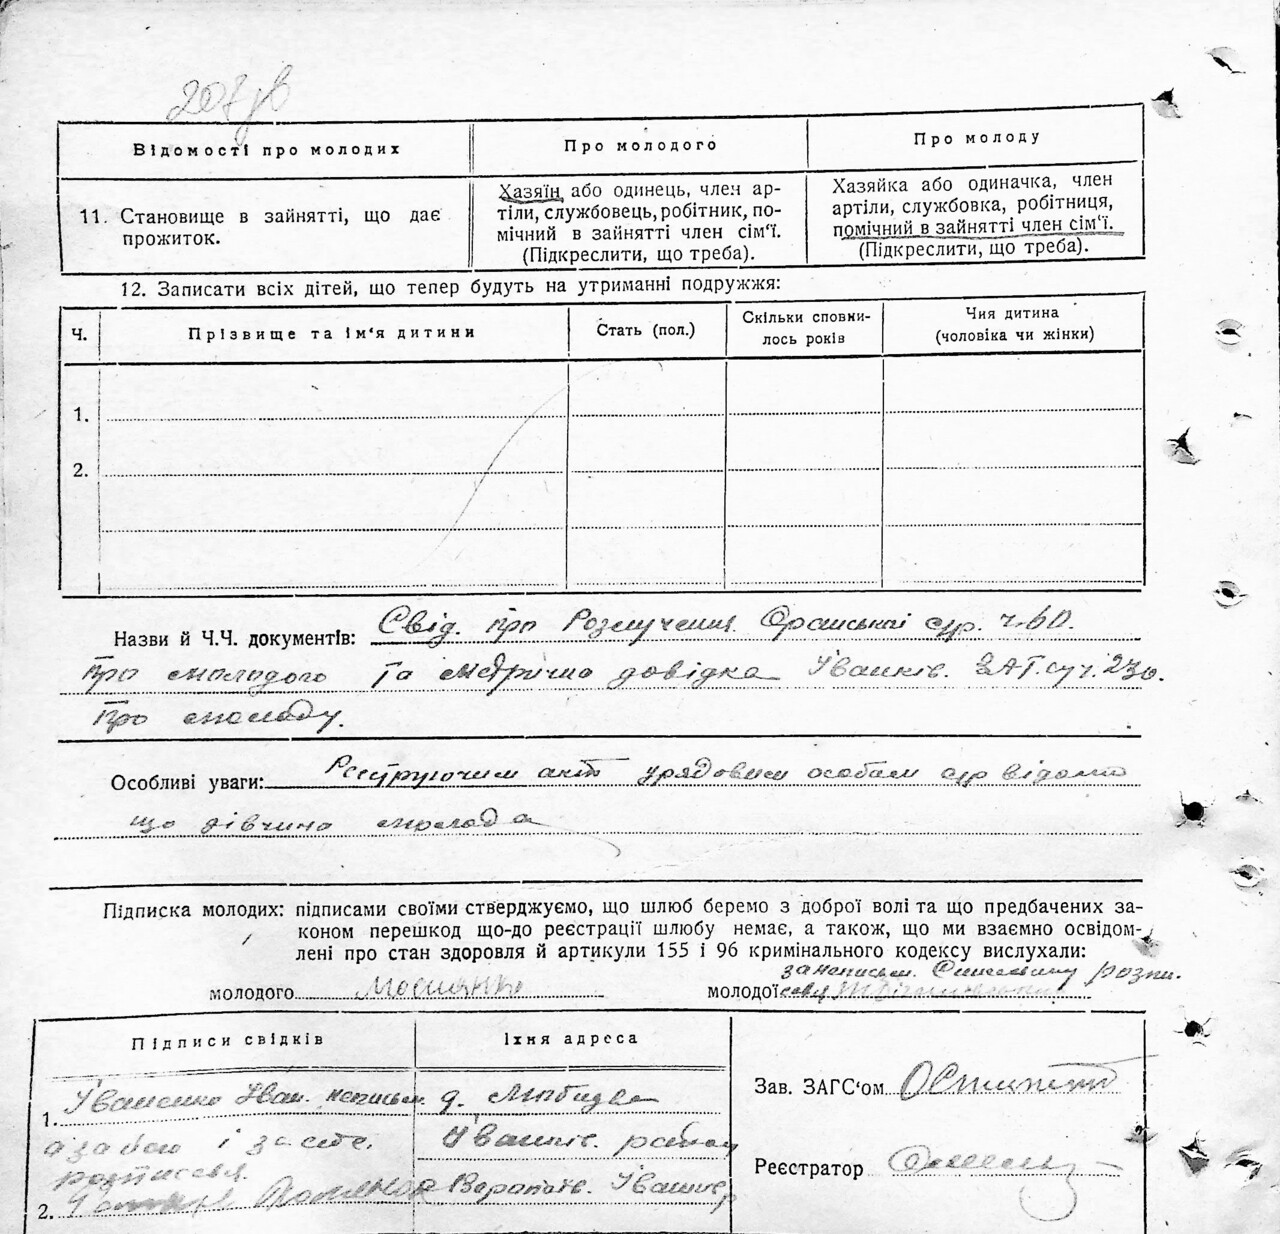 207зв
Відомості про молодих
Про молодого
Про молоду
11. Становище в зайнятті, що дає
прожиток.
Хазяїн або одинець, член ар-
тіли, службовець, робітник, по-
мічний в зайнятті член сім‘ї.
(Підкреслити, що треба).
Хазяйка або одиначка, член
артіли, службовка, робітниця,
помічний в зайнятті член сім‘ї.
(Підкреслити, що треба).
12. Записати всіх дітей, що тепер будуть на утриманні подружжя:
Ч.
Прізвище та ім‘я дитини
Стать (пол.)
Скільки сповни-
лось років
Чия дитина
(чоловіка чи жінки)
1.
2.
Назви й Ч.Ч. документів: Свід. про Розлучення ч. 60.
Про молодого та метрична довідка Іванків. ЗАГсу ч. 230.
Про молоду.
Особливі уваги: Реєструючим акт урядовим особам відомо
що дівчина молода
Підписка молодих: підписами своїми стверджуємо, що шлюб беремо з доброї волі та що предбачених за-
коном перешкод що-до реєстрації шлюбу немає, а також, що ми взаємно освідом-
лені про стан здоровля й артикули 155 і 96 кримінального кодексу вислухали:
за неписьм.
молодого
молодої
Підписи свідків
Їхня адреса
1. Іваненко Іван. неписьм.
а за його і за себе
розписався
2.
Іванків. району
Іванків
Зав. ЗАГС‘ом
Реєстратор